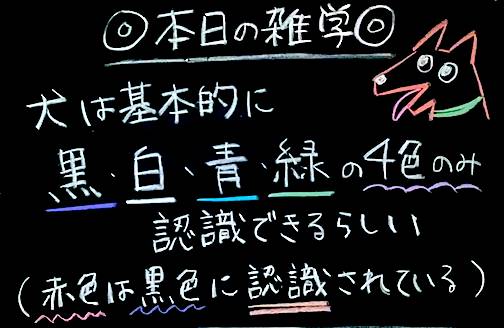 ◎本日の雑学◎
犬は基本的に
黒、白、青、緑の4色のみ
認識できるらしい
(赤色は黒色に認識されている)